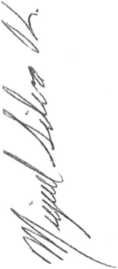 Miguel Silva K.